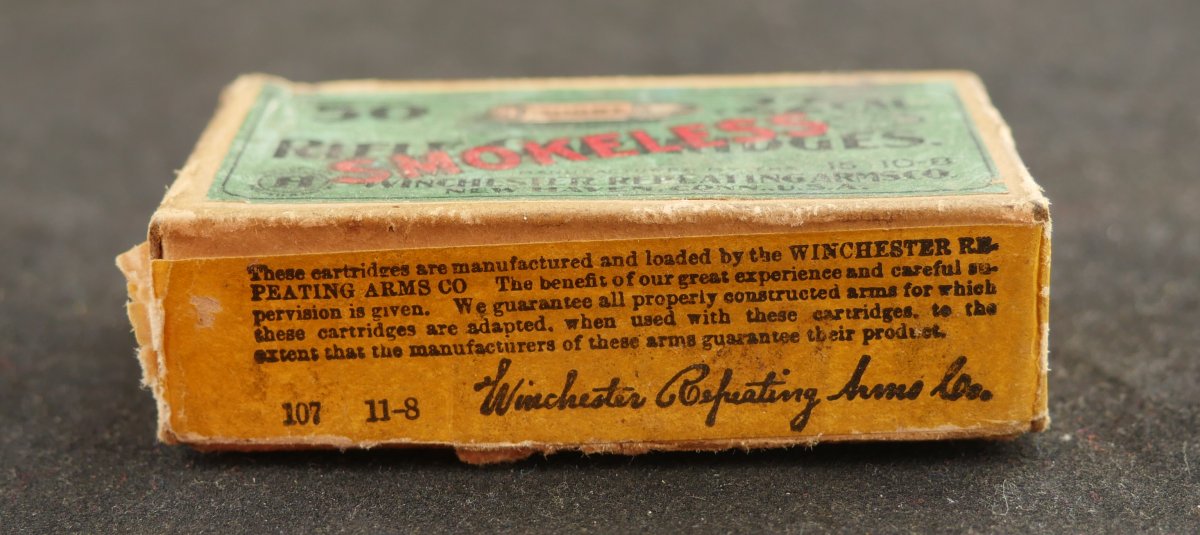 50 22 CAL.
RIFLE CARTRIDGES.
SMOKELESS
15 10-8
WINCHESTER REPEATING ARMS CO.
NEW HAVEN, CONN. U.S.A.
These cartridges are manufactured and loaded by the WINCHESTER RE-
PEATING ARMS CO The benefit of our great experience and careful su-
pervision is given. We guarantee all properly constructed arms for which
these cartridges are adapted, when used with these cartridges, to the
extent that the manufacturers of these arms guarantee their product.
Winchester Repeating Arms Co.
107 11-8